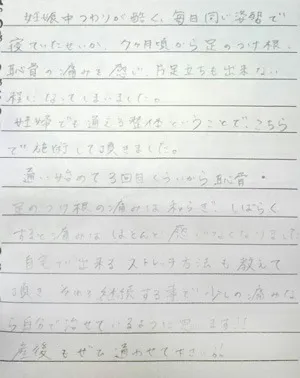 妊娠中つわりが酷く、毎日同じ姿勢で
寝ていたせいか、7ヶ月頃から足のつけ根、
恥骨の痛みを感じ、片足立ちも出来ない
程になってしまいました。
妊婦でも通える整体ということで、こちら
で施術して頂きました。
通い始めて3回目くらいから恥骨・
足のつけ根の痛みは和らぎ、しばらく
すると痛みはほとんど感じなくなりました
自宅で出来るストレッチ方法も教えて
頂き それを継続する事で少しの痛みな
ら自分で治せているように思います!!
産後もぜひ通わせて下さい!